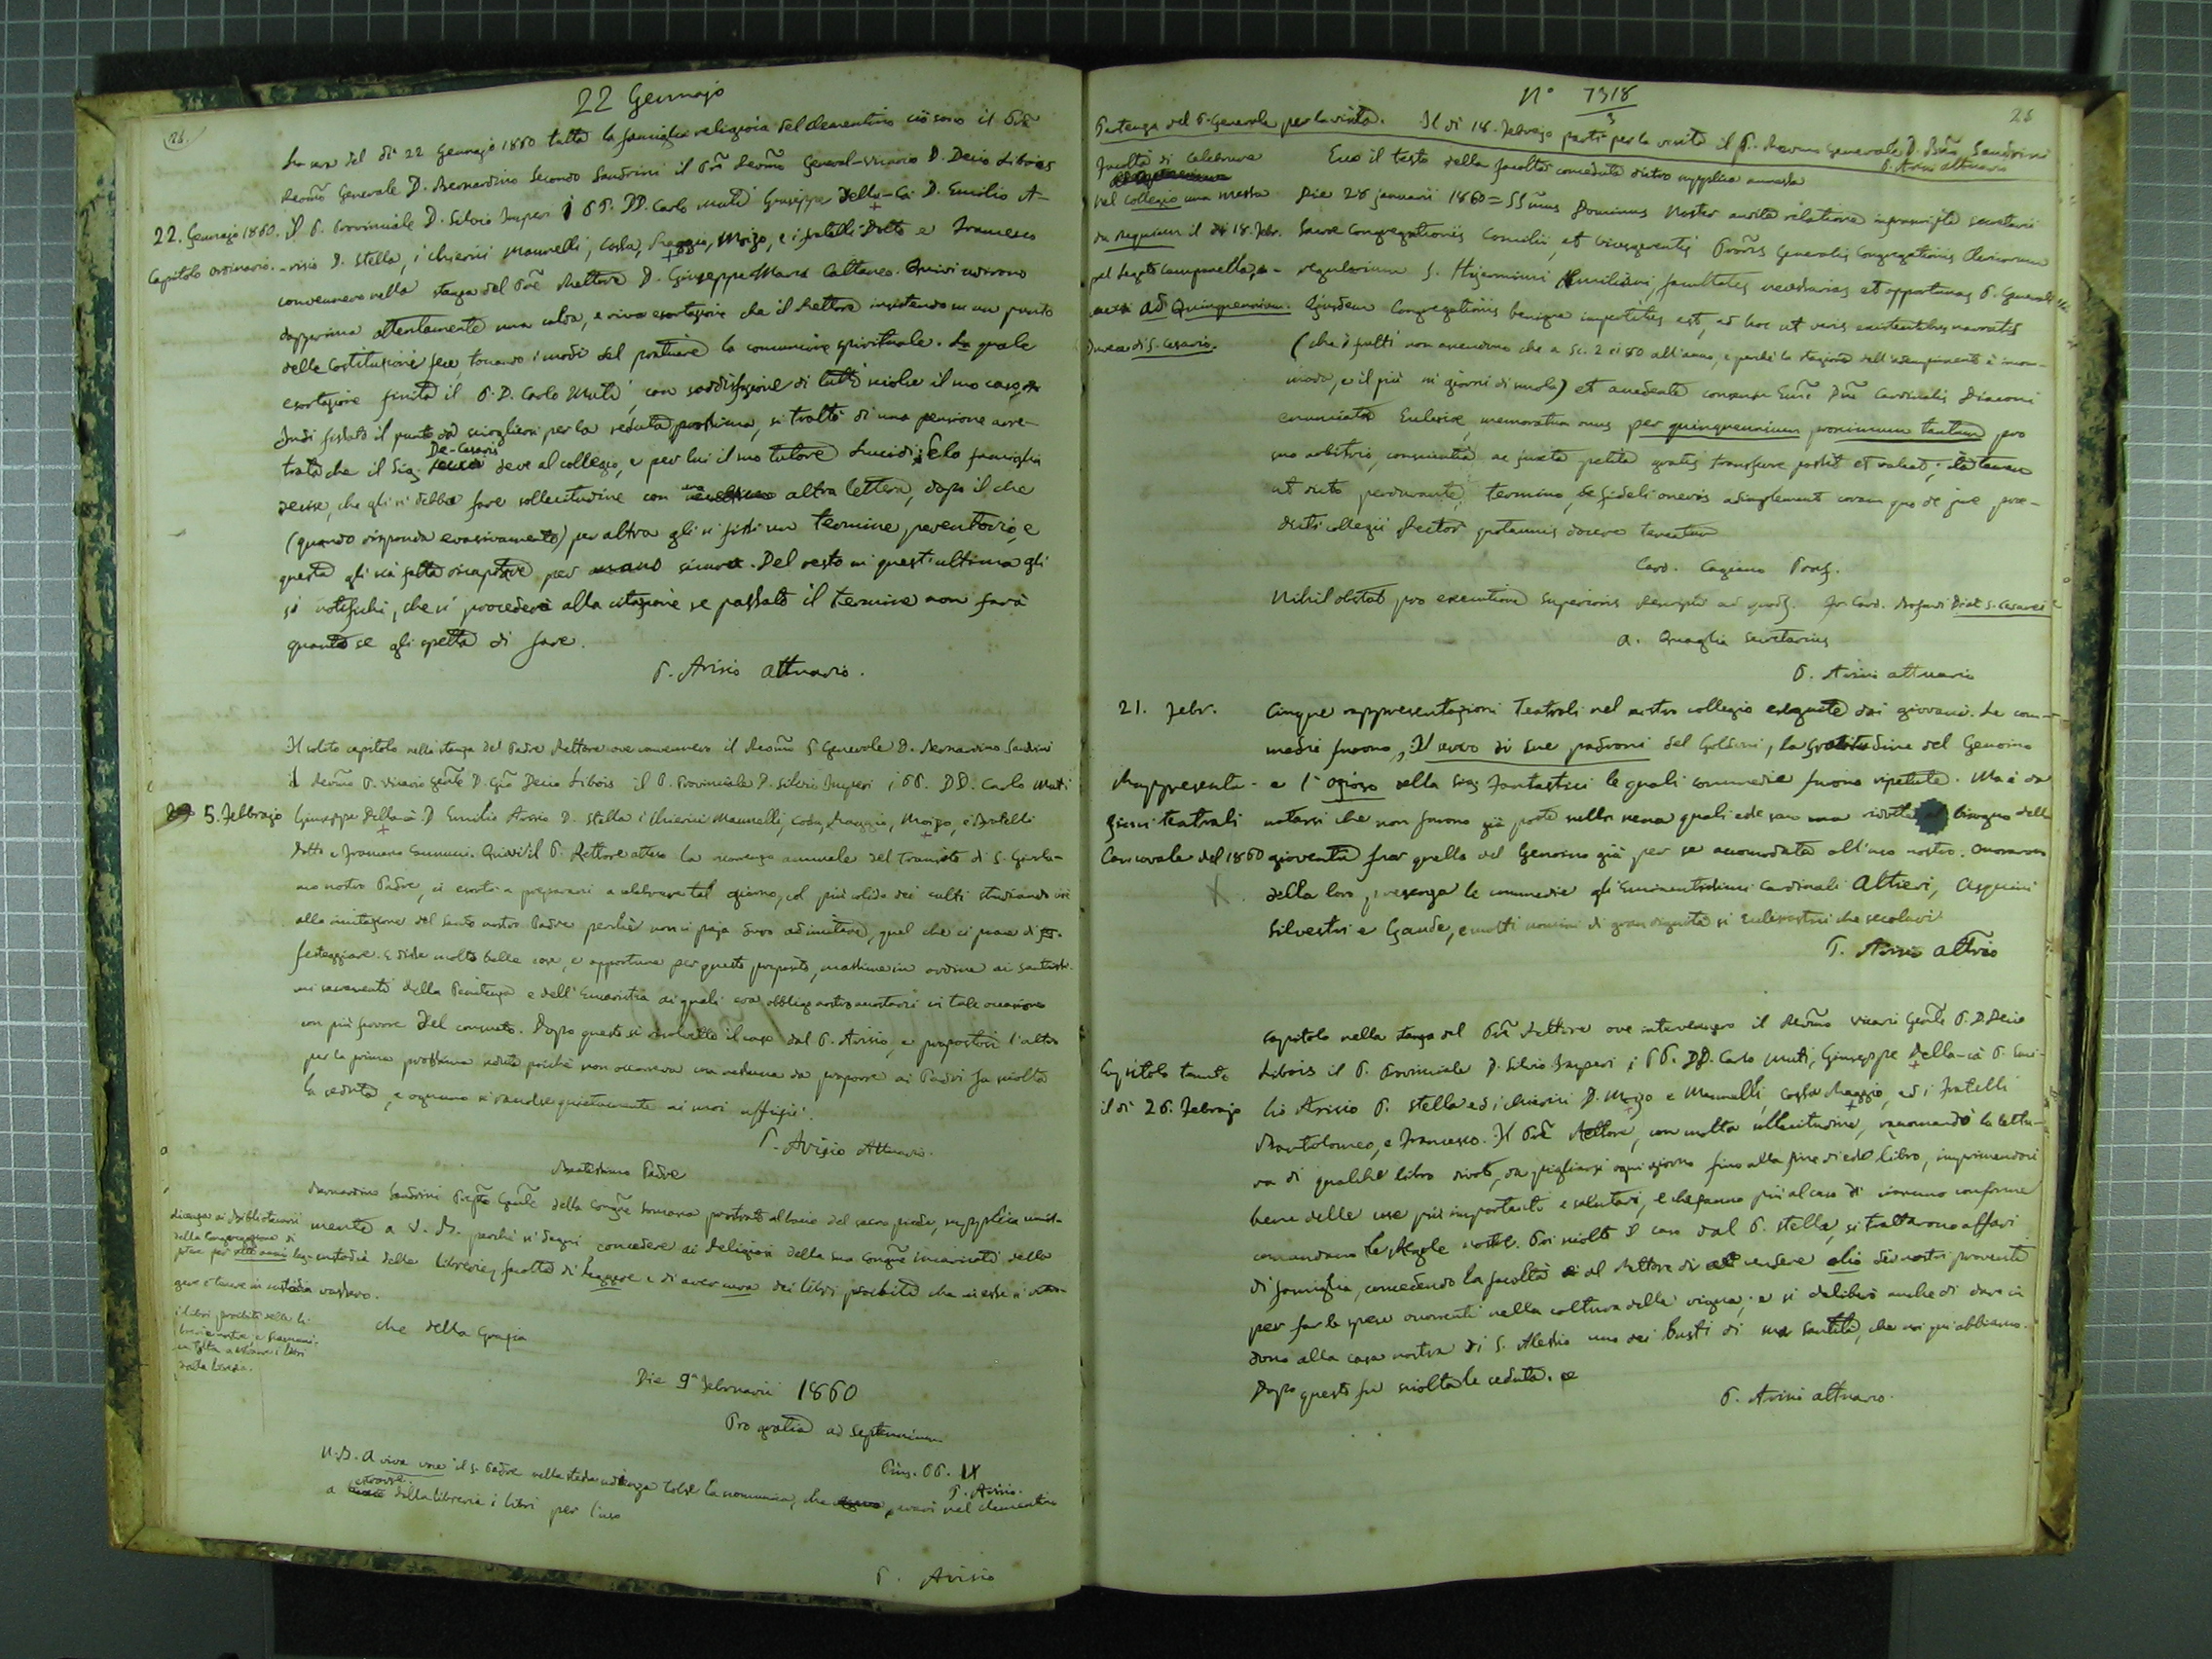 22 Gennajo
La sera del di 22 Gennajo 1860 tutta la famiglia religiosa del Clementino cioè sono il Prē
Revmo Generale D. Bernardino Secondo Sandrini il Prē Revmo General-Vicario D. Decio Libois
22. Gennajo 1860. il P. Provinciale D. Silvio Imperi i PP. DD. Carlo Muti Giuseppe Della-Cà D. Emilio A-
Capitolo ordinario. -risio D. Stella, i chierici Mannelli, Cossa, Maggio, Moizo, e i fratelli Dotto e Francesco
convennero nella stanza del Prē Rettore D. Giuseppe Maria Cattaneo. Quivi udirono
dapprima attentamente una calda, e viva esortazione che il Rettore insistendo su un punto
delle Costituzioni fece, toccando i modi del praticare la comunione spirituale. La quale
esortazione finita il P. D. Carlo Muti, con soddisfazione di tutti sciolse il suo caso
Indi fissato il punto da sciogliersi per la seduta prossima, si trattò di una pensione arre-
trata che il Sig. De-Cesaris deve al collegio, e per lui il suo tutore Lucidi; e la famiglia
decise, che gli si debba fare sollecitudine con una altra lettera, dopo il che
(quando risponda evasivamente) per altra gli si fissi un termine perentorio, e
questa gli sia fatta ricapitare per mano sicura. Del resto in quest'ultima gli
si notifichi, che si procederà alla citazione se passato il termine non farà
quanto se gli spetta di fare.
P. Arisio Attuario.
Il solito capitolo nella stanza del Padre Rettore ove convennero il Revmo P. Generale D. Bernardino Sandrini
il Revmo P. Vicario Genle D. Gio Decio Libois il P. Provinciale D. Silvio Imperi i PP. DD. Carlo Muti
5. Febbrajo Giuseppe Dellacà D. Emilio Arisio D. Stella i Chierici Mannelli, Cossa, Maggio, Moizo, e i fratelli
Dotto e Francesco. Quivi il P. Rettore atteso la ricorrenza annuale del Transito di S. Girola-
mo nostro Padre, ci esortò a prepararci a celebrare tal giorno, col più solido dei culti studiando
alla imitazione del Santo nostro Padre perchè non ci paja duro ad imitare, quel che ci piace di
festeggiare. E disse molte belle cose, e opportune per questo proposito, massime in ordine ai santissi-
mi sacramenti della Penitenza e dell'Eucaristia ai quali era obbligo nostro accostarci in tale occasione
con più fervore del consueto. Dopo questo si risolvette il caso dal P. Arisio, e propostosi l'altro
per la prima prossima seduta poichè non occorreva cosa nessuna da proporre ai Padri fu sciolta
la seduta, e ognuno si rendse quietamente ai suoi uffizii.
P. Arisio Attuario.
Beatissimo Padre
Bernardino Sandrini Prepto Genle della Congne Somasca prostrato al bacio del sacro piede, supplica umil-
mente a V. B. perchè si degni concedere ai Religiosi della sua Congne incaricati della
custodia delle librerie, facoltà di leggere e di aver cura dei libri proibiti che in esse si
Licenza ai Bibliotecarii
della Congregazione di
poter per sette anni leg-
gere e tenere in custodia
i libri proibiti delle li-
brerie nostre e
dalla libreria.
che della Grazia
Die 9a Februarii 1860
Pro gratia ad Septennium
Pius. PP. IX
P. Arisio.
N.B. A viva voce il S. Padre nella stessa udienza tolse la scomunica, che eravi nel Clementino
a estrarre dalla libreria i libri per l'uso
P. Arisio
N° 7318/3
25
Partenza del P. Generale per la visita. Il di 18. Febrajo partì per la visita il P. Revmo Generale D. Bno Sandrini
P. Arisio attuario
Facoltà di celebrare Ecco il testo della facoltà conceduta dietro supplica annessa
nel collegio una messa Die 28 januarii 1860 = SSmus Dominus Noster audita relatione infrascripti Secretarii
da requiem il di 18. Febr. Sacre Congregationis Concilii, et vicesgerentis Procris Generalis Congregationis Clericorum
pel Legato Campanella, regularium S. Hieronimi Æmiliani, facultates necessarias et opportunas P. Generali
ad Quinquennium. Ejusdem Congregationis benigne impertitus est, ad hoc ut veris existentibus narratis
Duca di S. Cesario. (che i frutti non ascendono che a Sc. 2 e 80 all'anno, e perchè la stagione dell'adempimento è inco-
moda, e il più in giorni di scuola) et accedente consensu Emi Dni Cardinalis Diaconi
enunciatæ Ecclesiæ, memoratum onus per quinquennium proximum tantum pro
suo arbitrio, conscientia ac juxta petita gratis transferre possit et valeat; ita tamen
ut dicto perdurante, termino, de fideli oneris adimplemento coram quo de jure præ-
dicti collegii Rector quotannis docere teneatur
Card. Cagiano Præf.
Nihil obstat pro executione superioris Rescripti ad quod. Fr. Card. Diac. S. Cesarei
A. Quaglia Secretarius
P. Arisio attuario
21. Febr. Cinque rappresentazioni Teatrali nel nostro collegio eseguite dai giovani. Le com-
medie furono, Il servo di due padroni del Goldoni, la gratitudine del Genoino
Rappresenta- e l'ozioso della Sig. Fantastici le quali commedie furono ripetute. Ma è da
zioni teatrali notarsi che non furono già poste sulla scena quali esse sono ma ridotte al bisogno della
Carnovale del 1860 gioventù fuor quella del Genoino già per se accomodata all'uso nostro. Onorarono
della loro presenza le commedie gli Eminentissimi Cardinali Altieri, Asquini
Silvestri e Gaude, e molti uomini di gran dignità sì Ecclesiastici che secolari
P. Arisio attrio
Capitolo nella stanza del Prē Rettore ove intervennero il Revmo Vicario Genle P. D. Decio
Capitolo tenuto Libois il P. Provinciale D. Silvio Imperi i PP. DD. Carlo Muti, Giuseppe Della-cà P. Emi-
il di 26. Febrajo lio Arisio P. Stella ed i chierici D. Moizo e Mannelli, Cossa Maggio, ed i fratelli
Bartolomeo, e Francesco. Il Prē Rettore, con molta sollecitudine, raccomandò la lettu-
ra di qualche libro divoto, da pigliarsi ogni giorno fino alla fine di esso libro, imprimendosi
bene delle cose più importanti e salutari, e che fanno più al caso di ciascuno conforme
comandano le Regole nostre. Poi sciolto il caso dal P. Stella, si trattarono affari
di famiglia, concedendo la facoltà al Rettore di vendere olio dei nostri proventi
per far le spese occorrenti nella coltura della vigna; e si deliberò anche di dare in
dono alla casa nostra di S. Alessio uno dei busti di sua Santità, che noi qui abbiamo.
Dopo questo fu sciolta la seduta.
P. Arisio attuario.